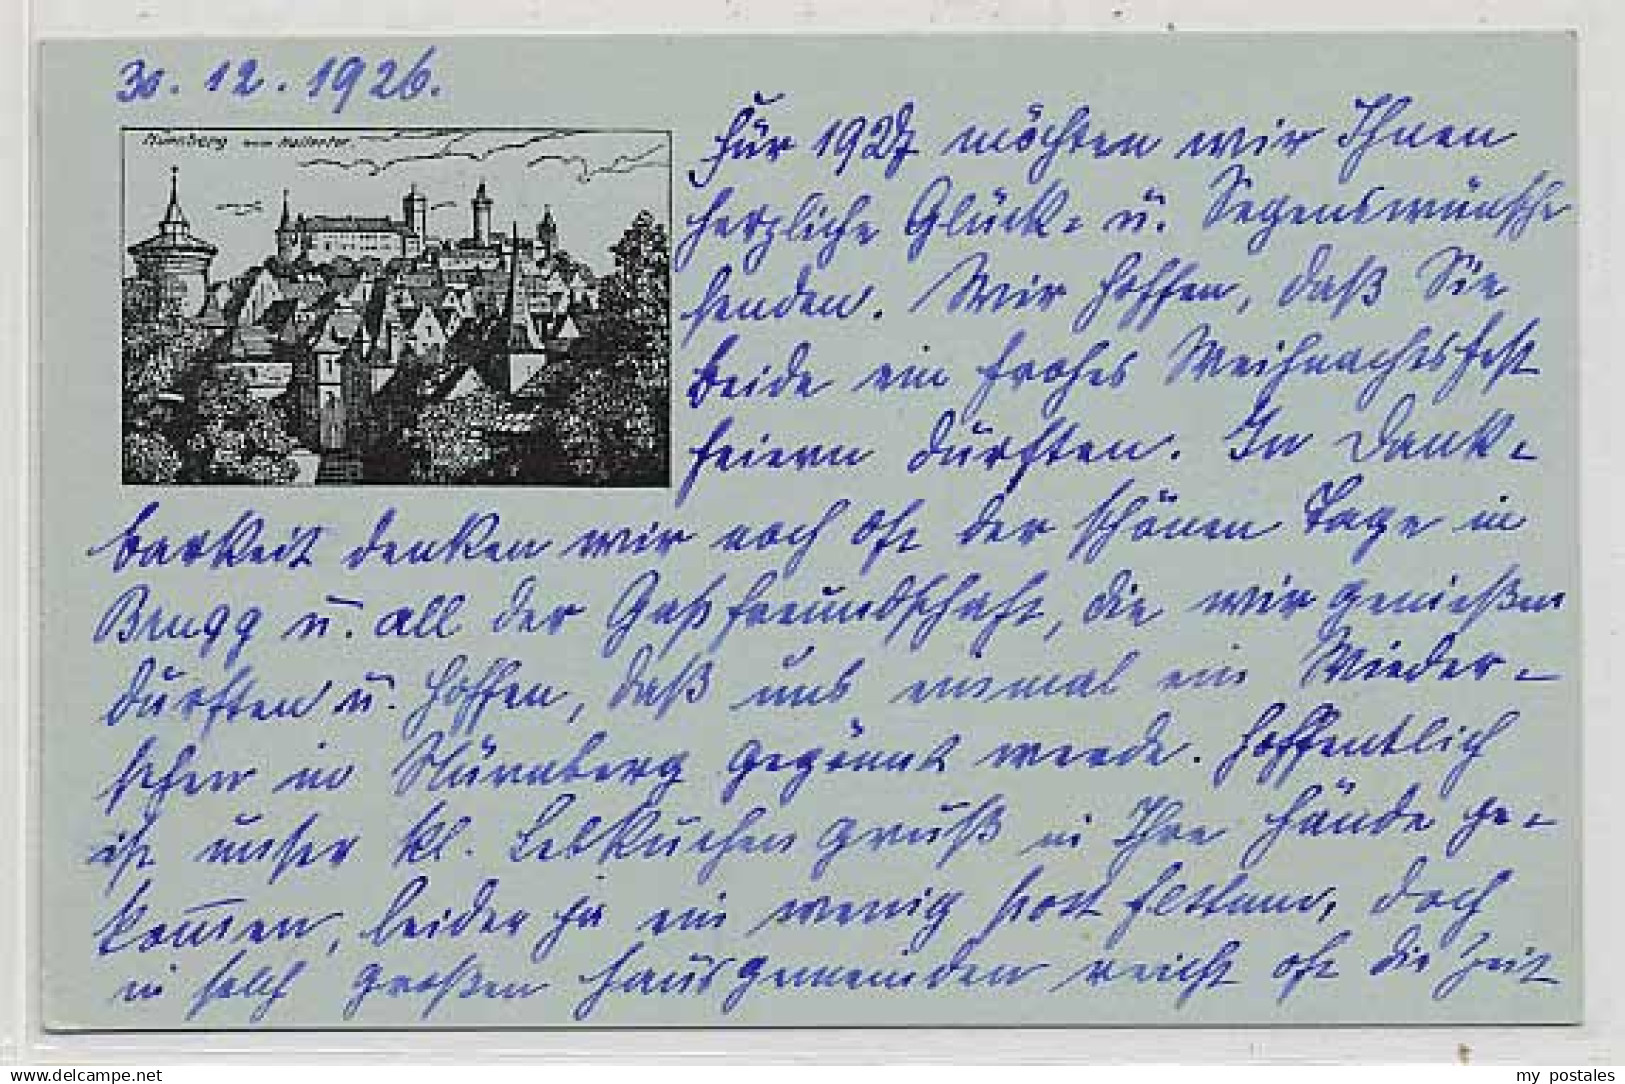 30. 12. 1926.
Nürnberg beim Hallertor.
Für 1927 möchten wir Ihnen
herzliche Glück- u. Segenswünsche
senden. Wir hoffen, daß Sie
beide ein frohes Weihnachtsfest
feiern durften. In Dank-
barkeit denken wir noch oft der schönen Tage in
Brugg u. all der Gastfreundschaft, die wir genießen
durften u. hoffen, daß uns einmal ein Wieder-
sehen in Nürnberg gegönnt werde. Hoffentlich
ist unser kl. Lebkuchengruß in Ihre Hände ge-
kommen, leider ja ein wenig post festum, doch
in solch großen Hausgemeinden reicht oft die Zeit
my postales